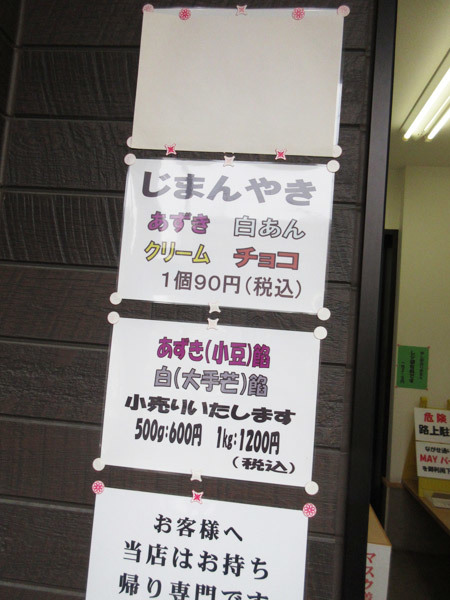 じまんやき
あずき 白あん
クリーム チョコ
1個90円(税込)
あずき(小豆)餡
白(大手芒)餡
小売りいたします
500g:600円 1kg:1200円
(税込)
お客様へ
当店はお持ち
帰り専門です
危険
路上駐
MAYパ
マスク